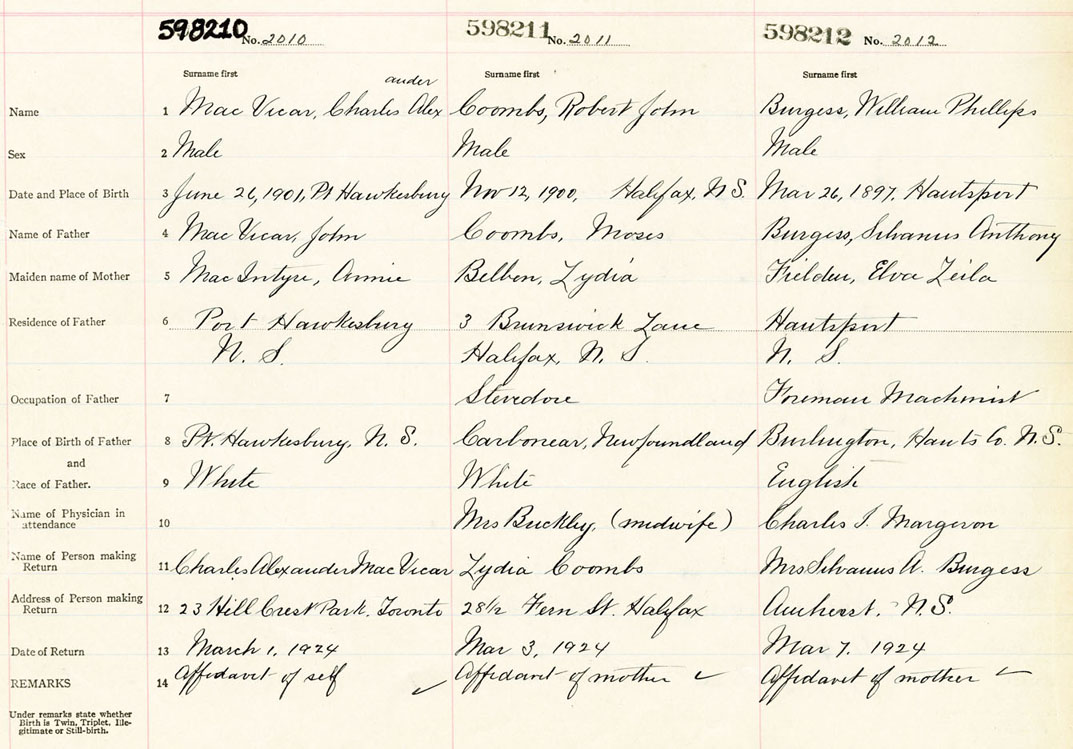 598210 No. 2010 598211 No. 2011 598212 No. 2012
Surname first ander Surname first Surname first
Name 1 Mac Vicar, Charles Alex Coombs, Robert John Burgess, William Phillips
Sex 2 Male Male Male
Date and Place of Birth 3 June 26, 1901, Pt Hawkesbury Nov 12, 1900, Halifax, N S. Mar 26, 1897, Hantsport
Name of Father 4 Mac Vicar, John Coombs, Moses Burgess, Silvanus Anthony
Maiden name of Mother 5 Mac Intyre, Annie Belben, Lydia Fielden, Elva Zeila
Residence of Father 6 Port Hawkesbury 3 Brunswick Lane Hantsport
N. S. Halifax, N. S. N. S.
Occupation of Father 7 Stevedore Foreman Machinist
Place of Birth of Father 8 Pt. Hawkesbury, N. S. Carbonear, Newfoundland Burlington, Hants Co. N.S.
and
Race of Father. 9 White White English
Name of Physician in
attendance 10 Mrs Buckley, (midwife) Charles I. Margeson
Name of Person making
Return 11 Charles Alexander Mac Vicar Lydia Coombs Mrs Silvanus A. Burgess
Address of Person making
Return 12 23 Hill Crest Park, Toronto 28½ Fern St. Halifax Amherst, N.S.
Date of Return 13 March 1, 1924 Mar 3, 1924 Mar 7, 1924
REMARKS 14 Affidavit of self ✓ Affidavit of mother ✓ Affidavit of mother ✓
Under remarks state whether
Birth is Twin, Triplet, Ille-
gitimate or Still-birth.